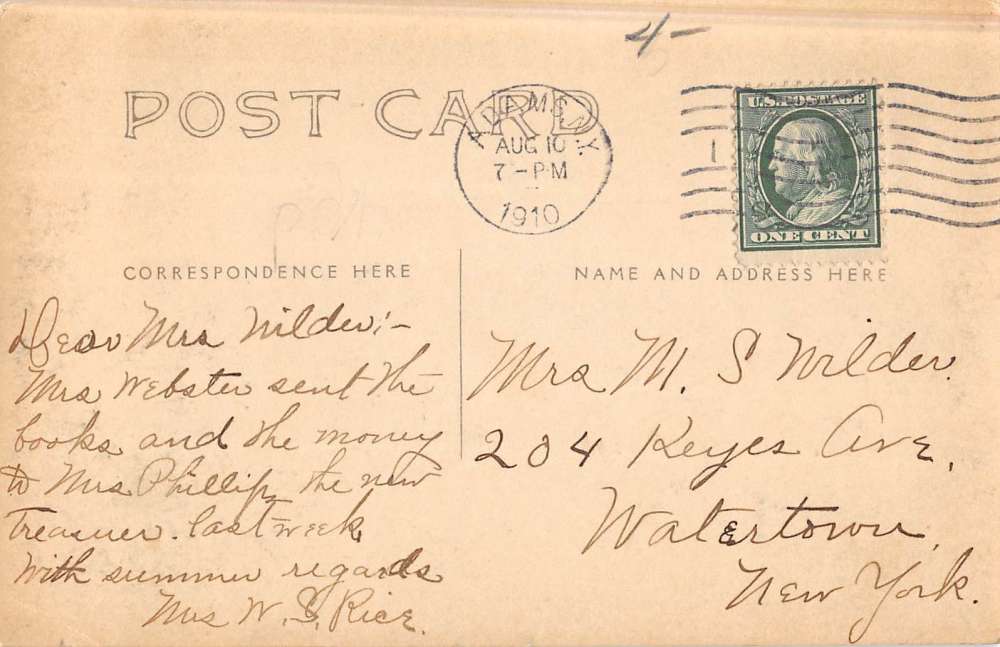 4-
POST CARD
ADAMS N.Y.
AUG 10
7-PM
1910
1
U.S. POSTAGE
ONE CENT
CORRESPONDENCE HERE
NAME AND ADDRESS HERE
Dear Mrs Wilder:-
Mrs Webster sent the
books and the money
to Mrs Phillips the new
Treasurer. last week,
With summer regards
Mrs W. S. Rice.
Mrs M. S Wilder.
204 Keyes Ave,
Watertown,
New York.